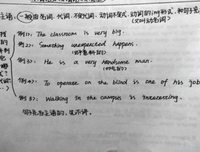 主语,(一般由名词、代词、不定代词、动词不定式、动词的ing形式、和句子充
(又叫动名词)
例1): The classroom is very big.
例2): Something unexpected happens.
例3): He is a very handsome man.
例4): To operate on the blind is one of his job
例5): Walking in the campus is interesting.